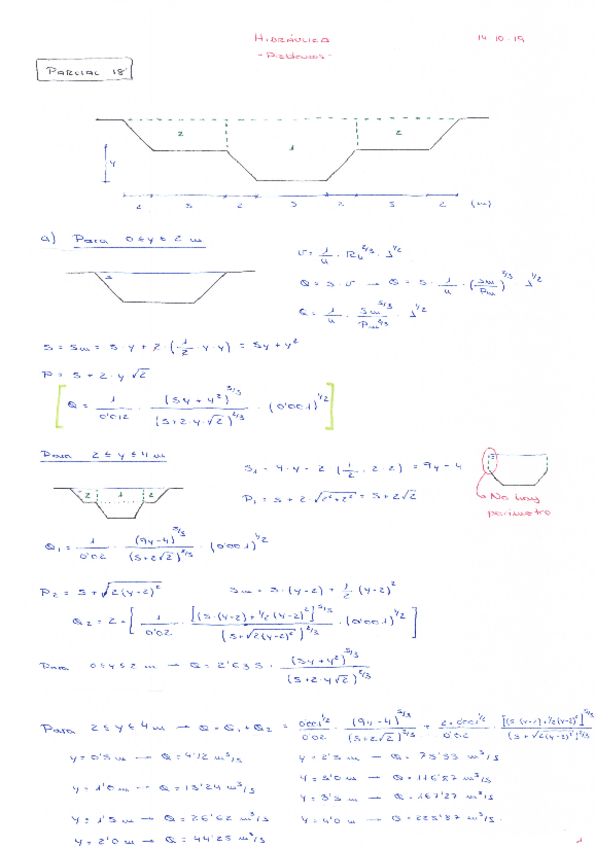 HIDRÁULICA
14-10-19
- PROBLEMAS -
PARCIAL 18'
2 1 2
y
2 5 2 5 2 5 2 (m)
a) Para 0 ≤ y ≤ 2 m
S
v = 1/n · Rh^2/3 · i^1/2
Q = S · v → Q = S · 1/n · (Sm/Pm)^2/3 · i^1/2
Q = 1/n · Sm^5/3/Pm^2/3 · i^1/2
S = Sm = 5 · y + 2 · (1/2 · y · y) = 5y + y²
P = 5 + 2 · y √2
[ Q = 1/0'012 · (5y + y²)^5/3/(5 + 2 · y · √2)^2/3 · (0'001)^1/2 ]
Para 2 ≤ y ≤ 4 m
2 1 2
S1 = 9 · y - 2 (1/2 · 2 · 2) = 9y - 4
P1 = 5 + 2 · √2²+2² = 5 + 2√2
No hay
perímetro
Q1 = 1/0'02 · (9y-4)^5/3/(5+2√2)^2/3 · (0'001)^1/2
P2 = 5 + √2(y-2)²
Sm = 5 · (y-2) + 1/2 (y-2)²
Q2 = 2 · [ 1/0'02 · [(5 · (y-2) + 1/2 (y-2)²]^5/3/(5+√2(y-2)²)^2/3 · (0'001)^1/2 ]
Para 0 ≤ y ≤ 2 m → Q = 2'635 · (5y + y²)^5/3/(5 + 2 · y √2)^2/3
Para 2 ≤ y ≤ 4 m → Q = Q1 + Q2 = 0'001^1/2/0'02 · (9y-4)^5/3/(5+2√2)^2/3 + 2 · 0'001^1/2/0'02 · [(5 · (y-2) + 1/2 (y-2)²]^5/3/(5 + √2(y-2)²)^2/3
y = 0'5 m → Q = 4'12 m³/s
y = 2'5 m → Q = 75'33 m³/s
y = 1'0 m → Q = 13'24 m³/s
y = 3'0 m → Q = 116'87 m³/s
y = 1'5 m → Q = 26'62 m³/s
y = 3'5 m → Q = 167'27 m³/s
y = 2'0 m → Q = 44'25 m³/s
y = 4'0 m → Q = 225'87 m³/s
1